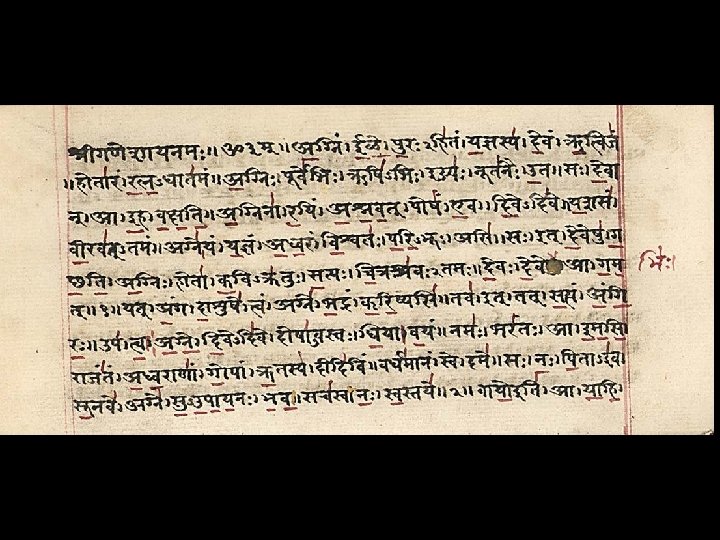 श्रीगणेशायनमः॥ ॐ३म्॥ अग्निं। ईळे। पुरःऽहितं। यज्ञस्य। देवं। ऋत्विजं
॥होतारं। रत्नऽधातमं॥ अग्निः। पूर्वेभिः। ऋषिऽभिः। ईड्यः। नूतनैः। उत॥ सः। देवा
न्। आ। इह। वक्षति॥ अग्निना। रयिं। अश्नवत्। पोषं। एव। दिवेऽदिवे॥ यशसं
वीरवत्ऽतमं॥ अग्ने। यं। यज्ञं। अध्वरं। विश्वतः। परिऽभूः। असि॥ सः। इत्। देवेषु। ग
च्छति॥ अग्निः। होता। कविऽक्रतुः। सत्यः। चित्रश्रवःऽतमः॥ देवः। देवे आ। गम
भिः।
त्॥१॥ यत्। अंग। दाशुषे। त्वं। अग्ने। भद्रं। करिष्यसि॥ तव। इत्। तत्। सत्यं। अंगि
रः॥ उप। त्वा। अग्ने। दिवेऽदिवे। दोषाऽवस्तः। धिया। वयं॥ नमः। भरंतः। आ। इमसि॥
राजंतं। अध्वराणां। गोपां। ऋतस्य। दीदिविं॥ वर्धमानं। स्वे। दमे॥ सः। नः। पिताऽइव।
सूनवे। अग्ने। सुऽउपायनः। भव॥ सचस्व। नः। स्वस्तये॥२॥ वायो इति। आ। याहि।